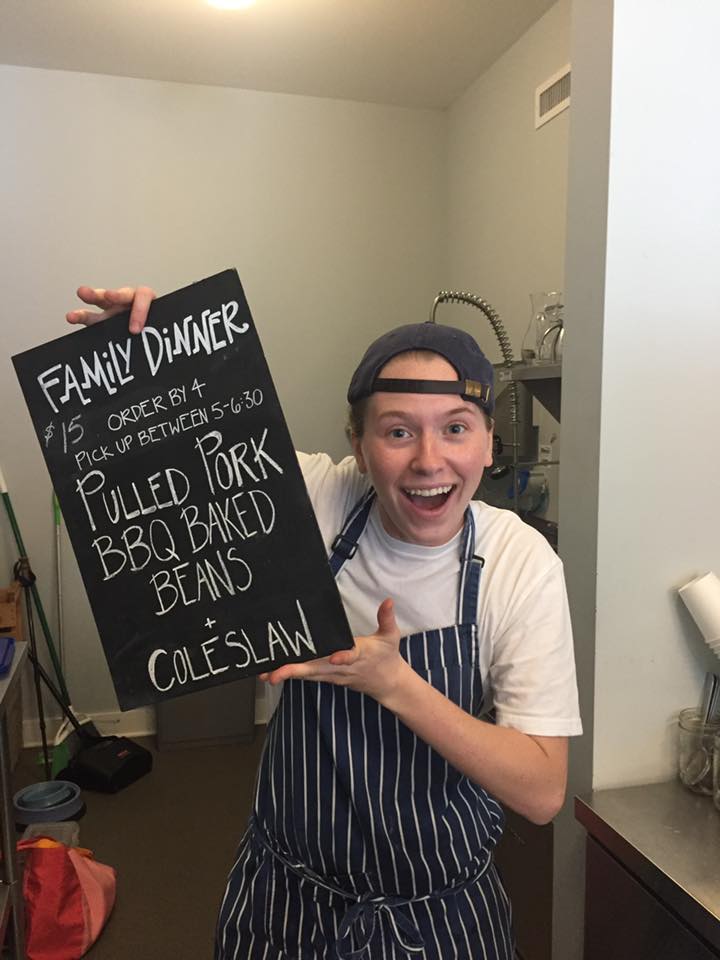 FAMILY DINNER
$15 ORDER BY 4
PICK UP BETWEEN 5-6:30
PULLED PORK
BBQ BAKED
BEANS
+
COLESLAW